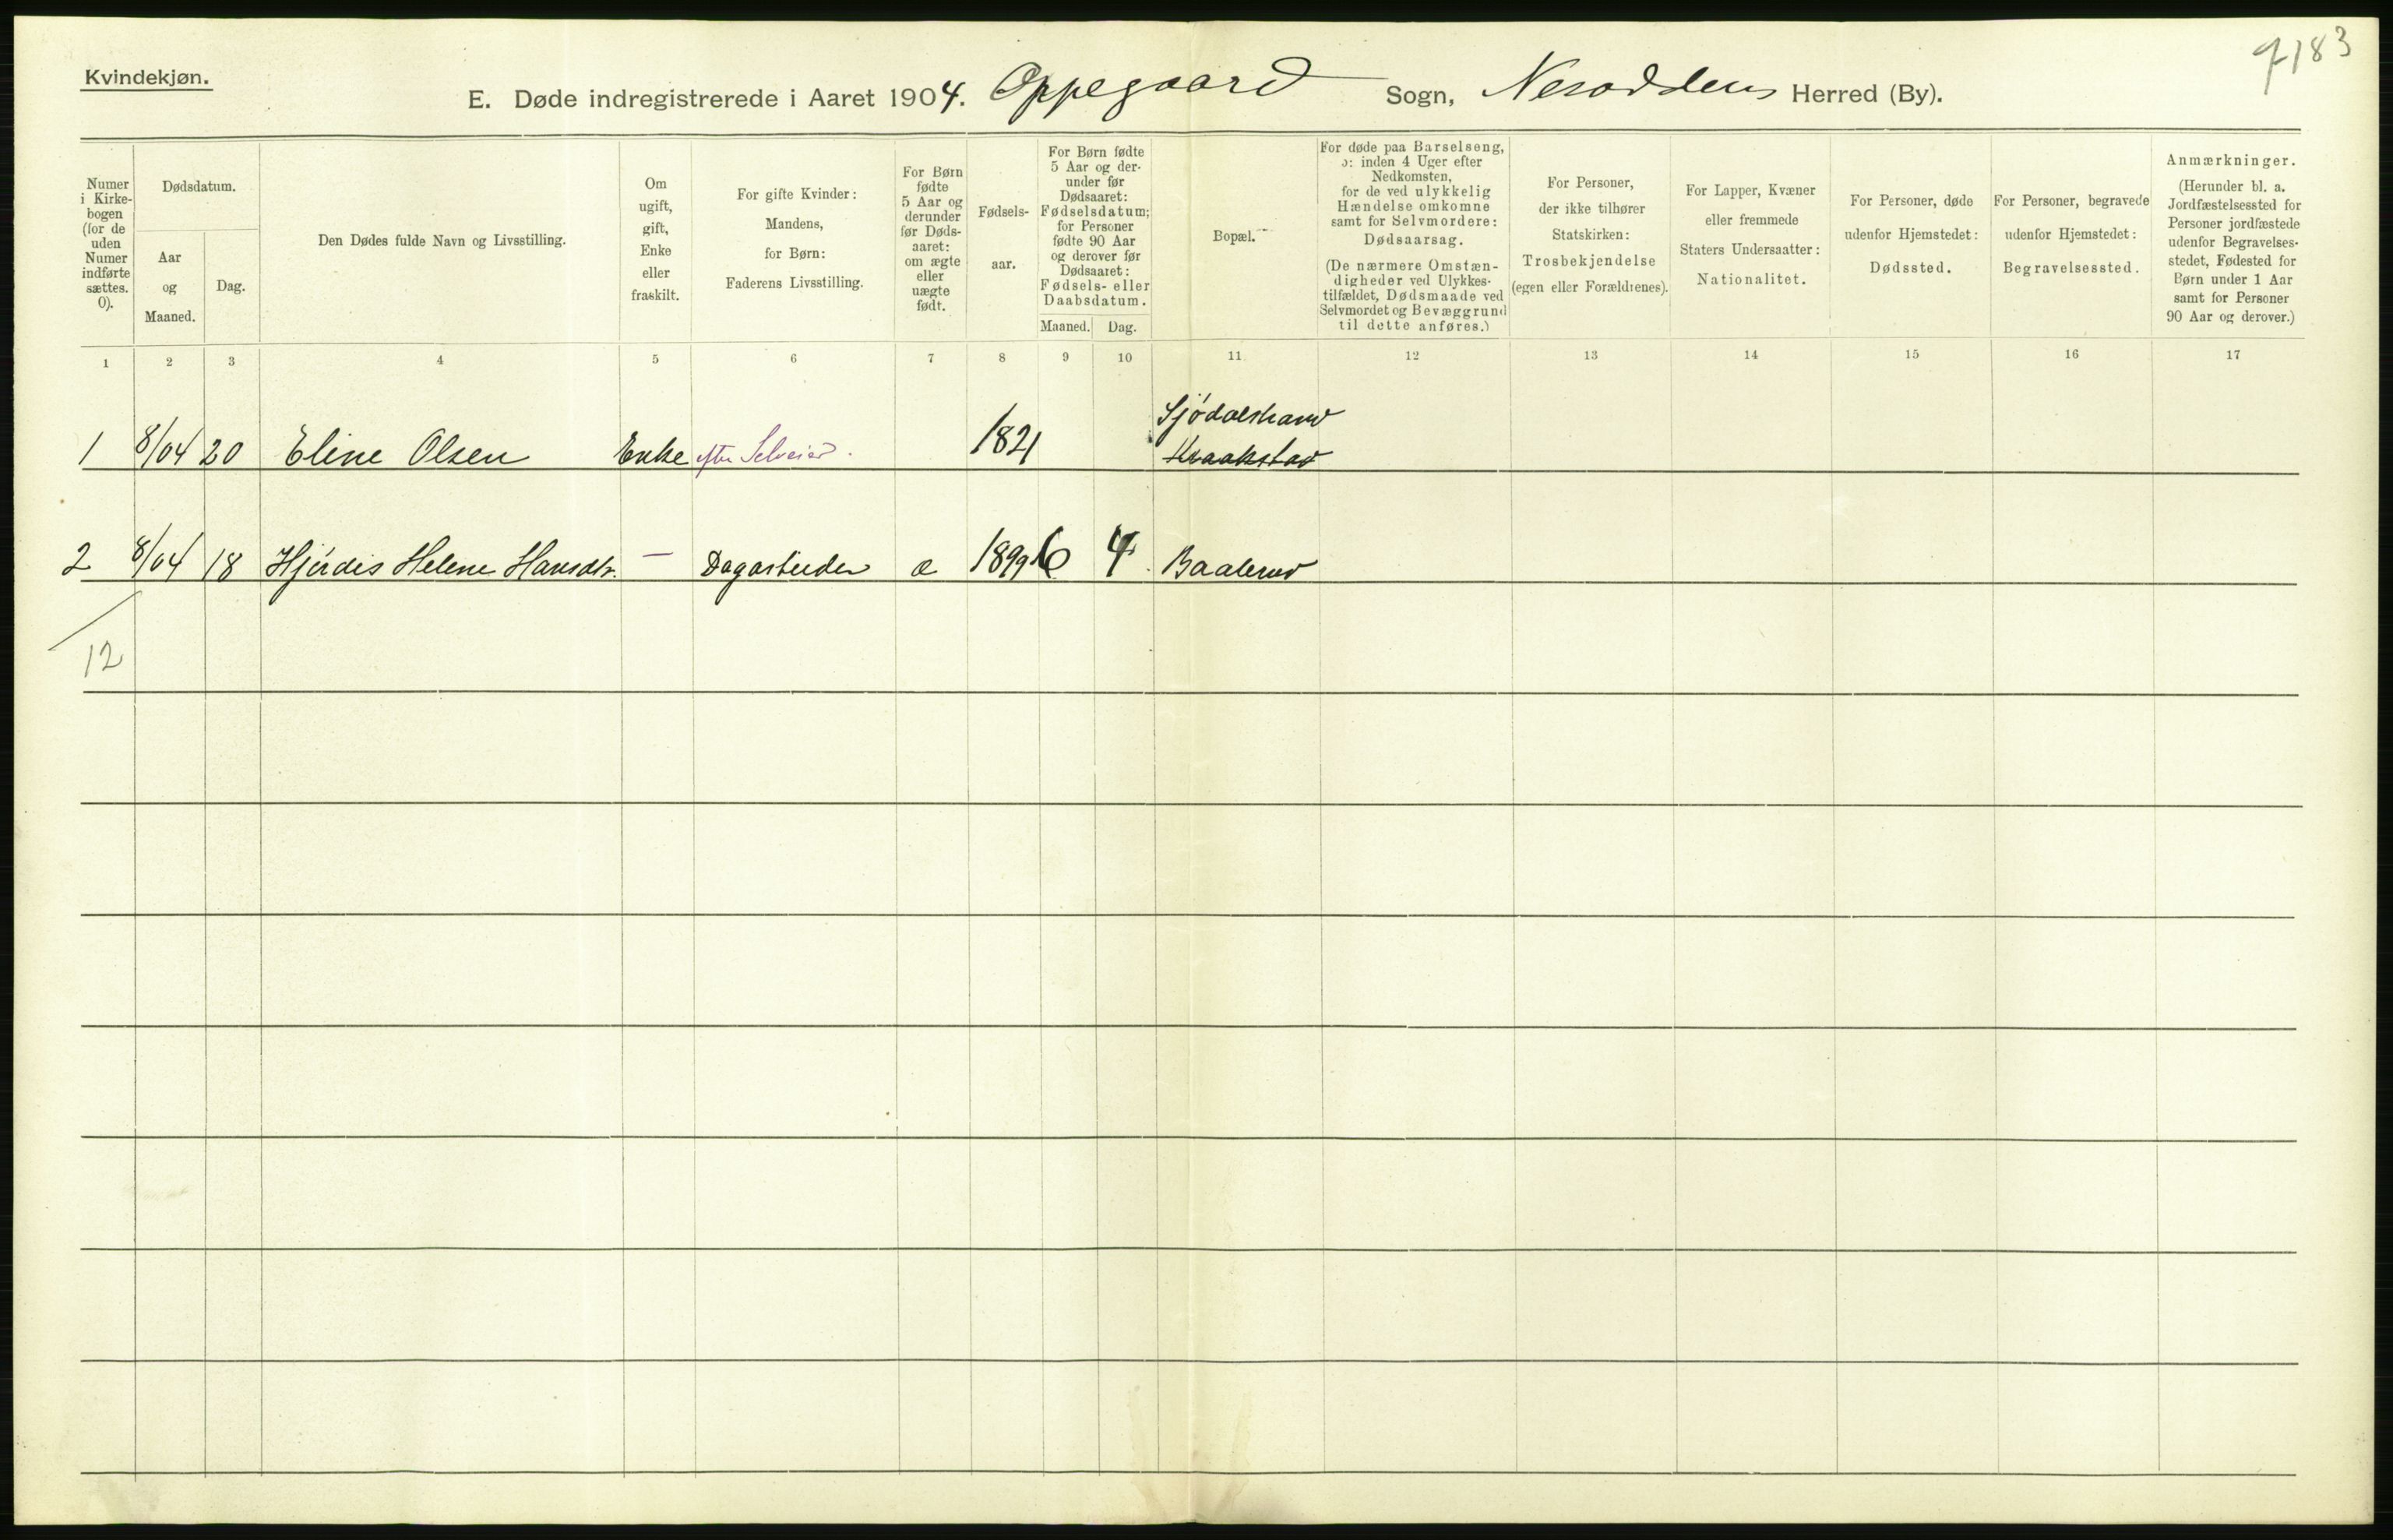 Kvindekjøn.
E. Døde indregistrerede i Aaret 1904. Oppegaard Sogn, Nesoddens Herred (By).
183
Numer i Kirke-bogen (for de uden Numer indførte sættes. 0).
Dødsdatum.
Aar og Maaned.
Dag.
Den Dødes fulde Navn og Livsstilling.
Om ugift, gift, Enke eller fraskilt.
For gifte Kvinder: Mandens, for Børn: Faderens Livsstilling.
For Børn fødte 5 Aar og derunder før Døds-aaret: om ægte eller uægte født.
Fødsels-aar.
For Børn fødte 5 Aar og der-under før Dødsaaret: Fødselsdatum; for Personer fødte 90 Aar og derover før Dødsaaret: Fødsels- eller Daabsdatum.
Maaned. Dag.
Bopæl.
For døde paa Barselseng, ɔ: inden 4 Uger efter Nedkomsten, for de ved ulykkelig Hændelse omkomne samt for Selvmordere: Dødsaarsag.
(De nærmere Omstæn-digheder ved Ulykkes-tilfældet, Dødsmaade ved Selvmordet og Bevæggrund til dette anføres.)
For Personer, der ikke tilhører Statskirken: Trosbekjendelse (egen eller Forældrenes).
For Lapper, Kvæner eller fremmede Staters Undersaatter: Nationalitet.
For Personer, døde udenfor Hjemstedet: Dødssted.
For Personer, begravede udenfor Hjemstedet: Begravelsessted.
Anmærkninger.
(Herunder bl. a. Jordfæstelsessted for Personer jordfæstede udenfor Begravelses-stedet, Fødested for Børn under 1 Aar samt for Personer 90 Aar og derover.)
1 2 3 4 5 6 7 8 9 10 11 12 13 14 15 16 17
1 8/04 20 Eline Olsen Enke efter Selveier. 1821 Sjødalstrand Kraakstad
2 8/04 18 Hjördis Helene Hansdtr. — Dagarbeider æ 1899 6 4 Baalerud
12